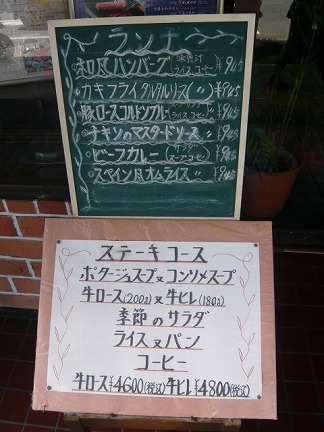 ランチ
和風ハンバーグ 味噌汁 ライス コーヒー ¥945
カキフライタルタルソース( 〃 )¥945
豚ロースコルドンブルー ライス コーヒー ¥945
チキンのマスタードソース 〃 ¥945
ビーフカレー(サラダ スープ コーヒー)¥945
スペイン風オムライス 〃 ¥945
ステーキコース
ポタージュスープ又コンソメスープ
牛ロース(200g)又牛ヒレ(180g)
季節のサラダ
ライス又パン
コーヒー
牛ロース¥4600(税込)牛ヒレ¥4800(税込)